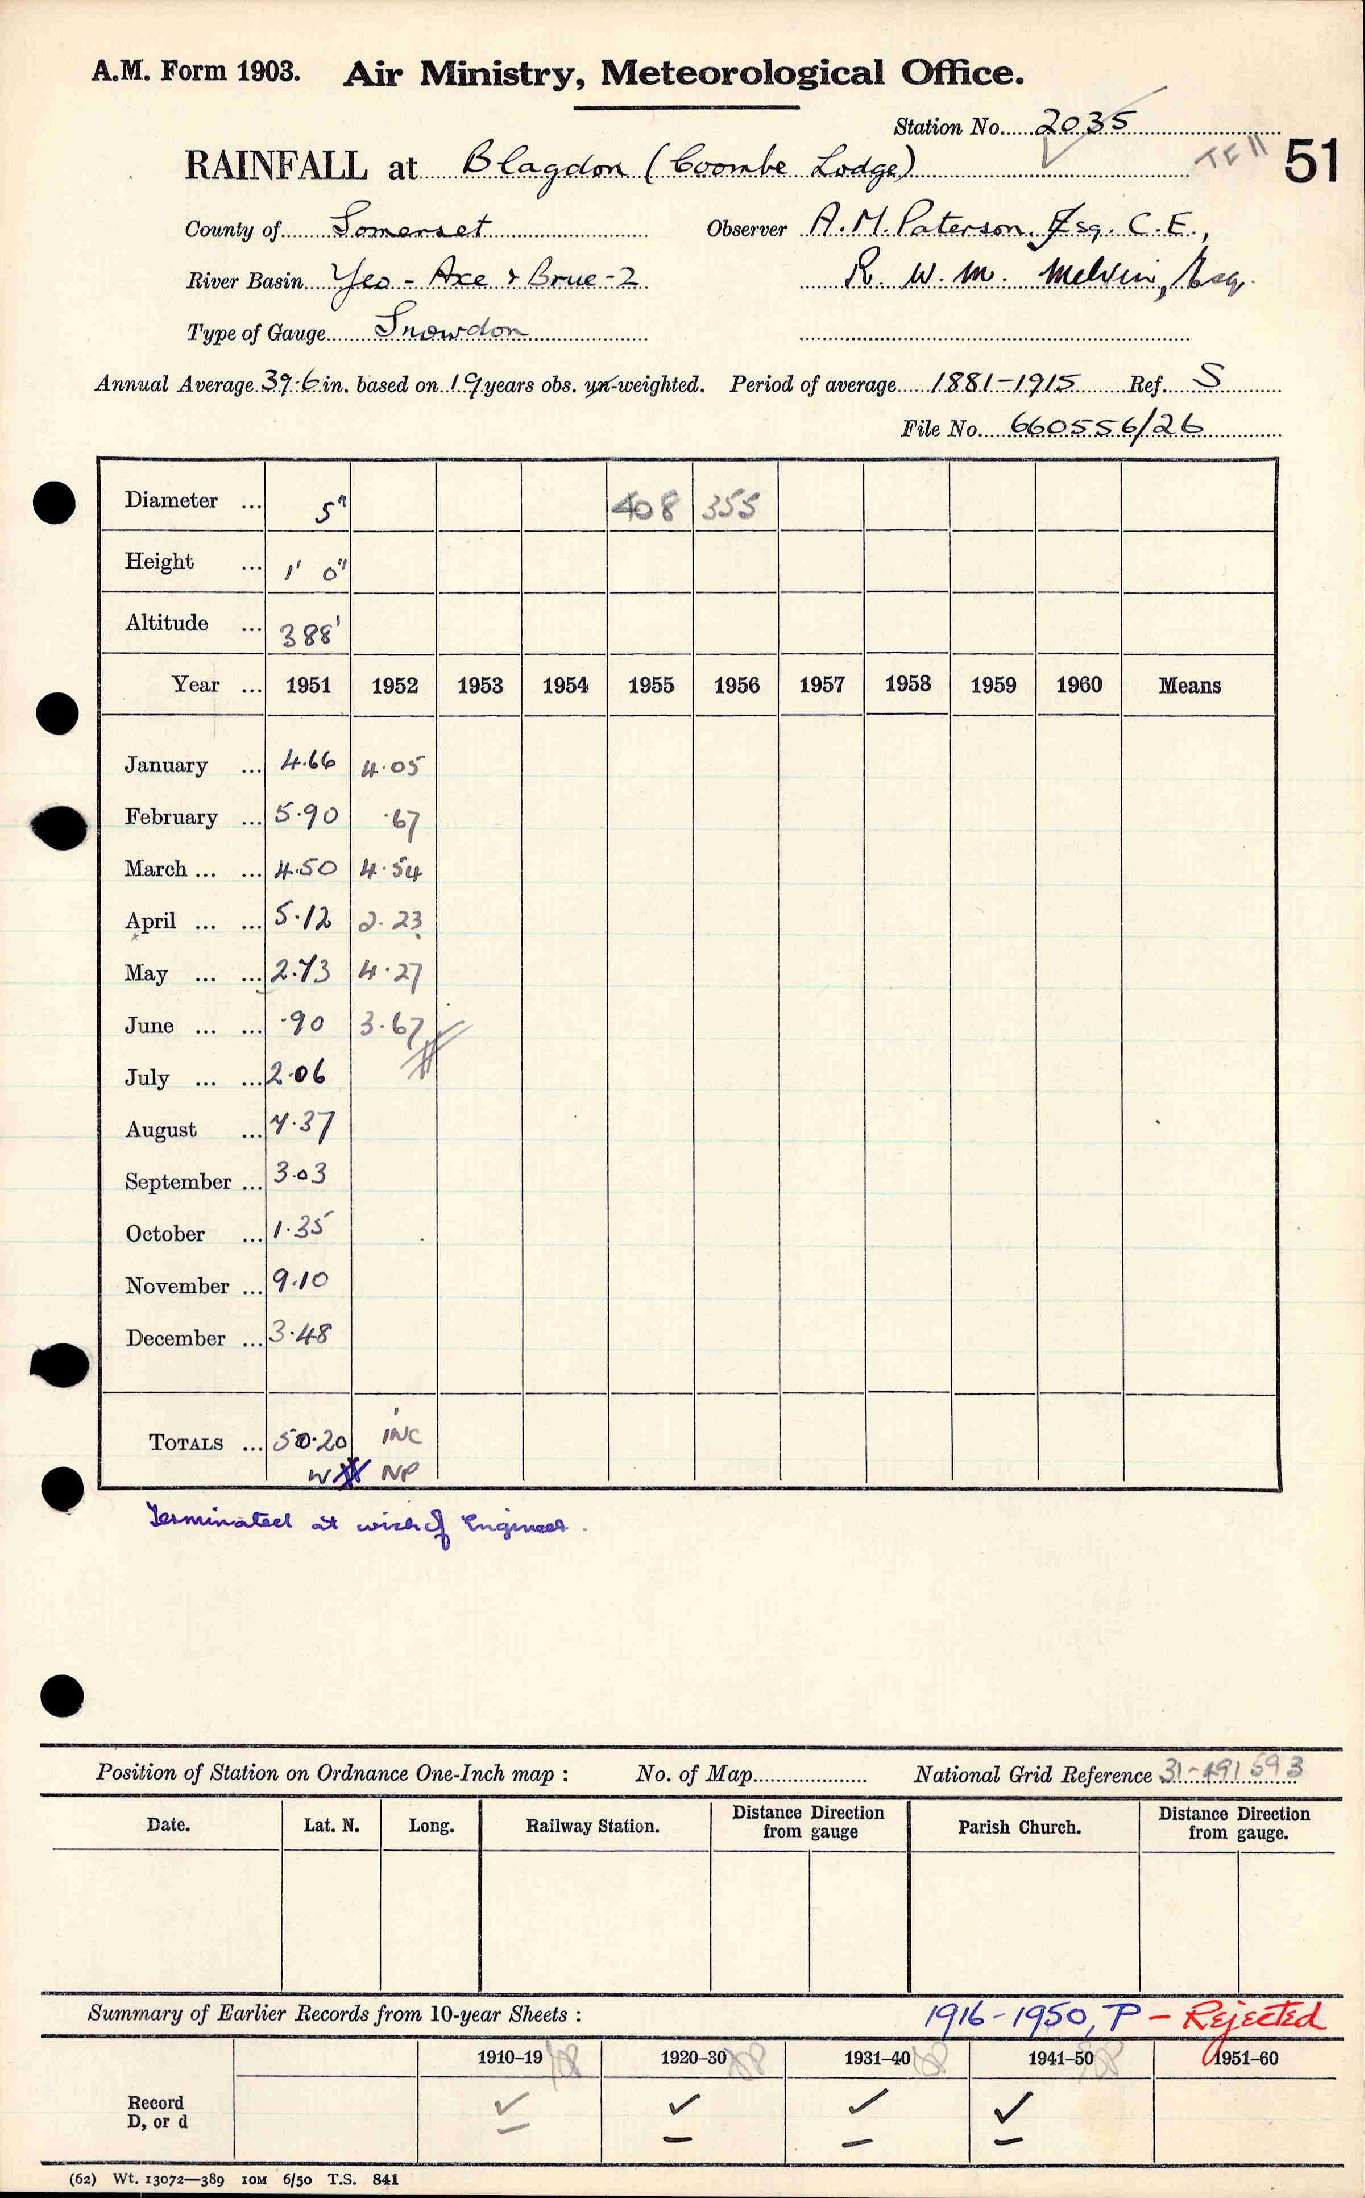 A.M. Form 1903. Air Ministry, Meteorological Office.
Station No. 2035
RAINFALL at Blagdon (Coombe Lodge) TE 11 51
County of Somerset Observer A. M. Paterson. Esq. C.E.,
River Basin Yeo - Axe & Brue - 2 R. W. M. Melvin, Esq.
Type of Gauge Snowdon
Annual Average 39.6 in. based on 19 years obs. un-weighted. Period of average 1881-1915 Ref. S
File No. 660556/26
Diameter ... 5" 408 355
Height ... 1' 0"
Altitude ... 388'
Year ... 1951 1952 1953 1954 1955 1956 1957 1958 1959 1960 Means
January ... 4.66 4.05
February ... 5.90 .67
March ... ... 4.50 4.54
April ... ... 5.12 2.23
May ... ... 2.73 4.27
June ... ... .90 3.67
July ... ... 2.06
August ... 7.37
September ... 3.03
October ... 1.35
November ... 9.10
December ... 3.48
TOTALS ... 50.20 INC
W NP
Terminated at wish of Engineer.
Position of Station on Ordnance One-Inch map : No. of Map National Grid Reference 31-491593
Date. Lat. N. Long. Railway Station. Distance Direction from gauge Parish Church. Distance Direction from gauge.
Summary of Earlier Records from 10-year Sheets : 1916-1950, P - Rejected
1910-19 1920-30 1931-40 1941-50 1951-60
Record
D, or d
(62) Wt. 13072—389 10M 6/50 T.S. 841